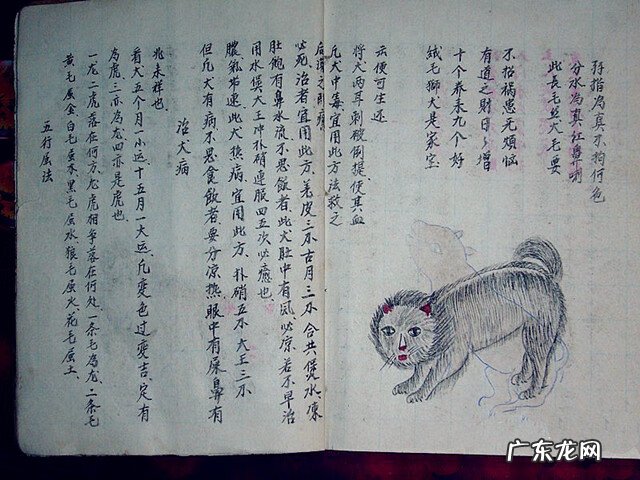 五行屬法
黄毛屬金白毛屬木黑毛屬水狼毛屬火花毛屬土
一龙二虎落在何方龙虎相争落在何处一条毛為龙二条毛
為虎三亦為龙四亦是虎也
看犬五个月一小运十五月一大运凡变色过变吉定有
兆永祥也
治犬病
但凡犬有病不思食飲者要分凉热眼中有屎鼻有
膿氣布速此犬热病宜用此方朴硝五分大王三分
用水煲大王冲朴硝連服四五次必癒也
肚飽有鼻水流不思飲者此犬肚中有風必凉若不早治
必死治者宜用此方羌皮三分古月三分合共煲水凍
凡犬中毒宜用此方法救之
將犬两耳刺破倒提使其血
云便可生还
絨毛獅犬是家宝
十个养来九个好
有道之財日々增
不招禍患无煩惱
此長毛丝犬毛要
分水為真红鼻
孖指為真不拘何色
广东龙网